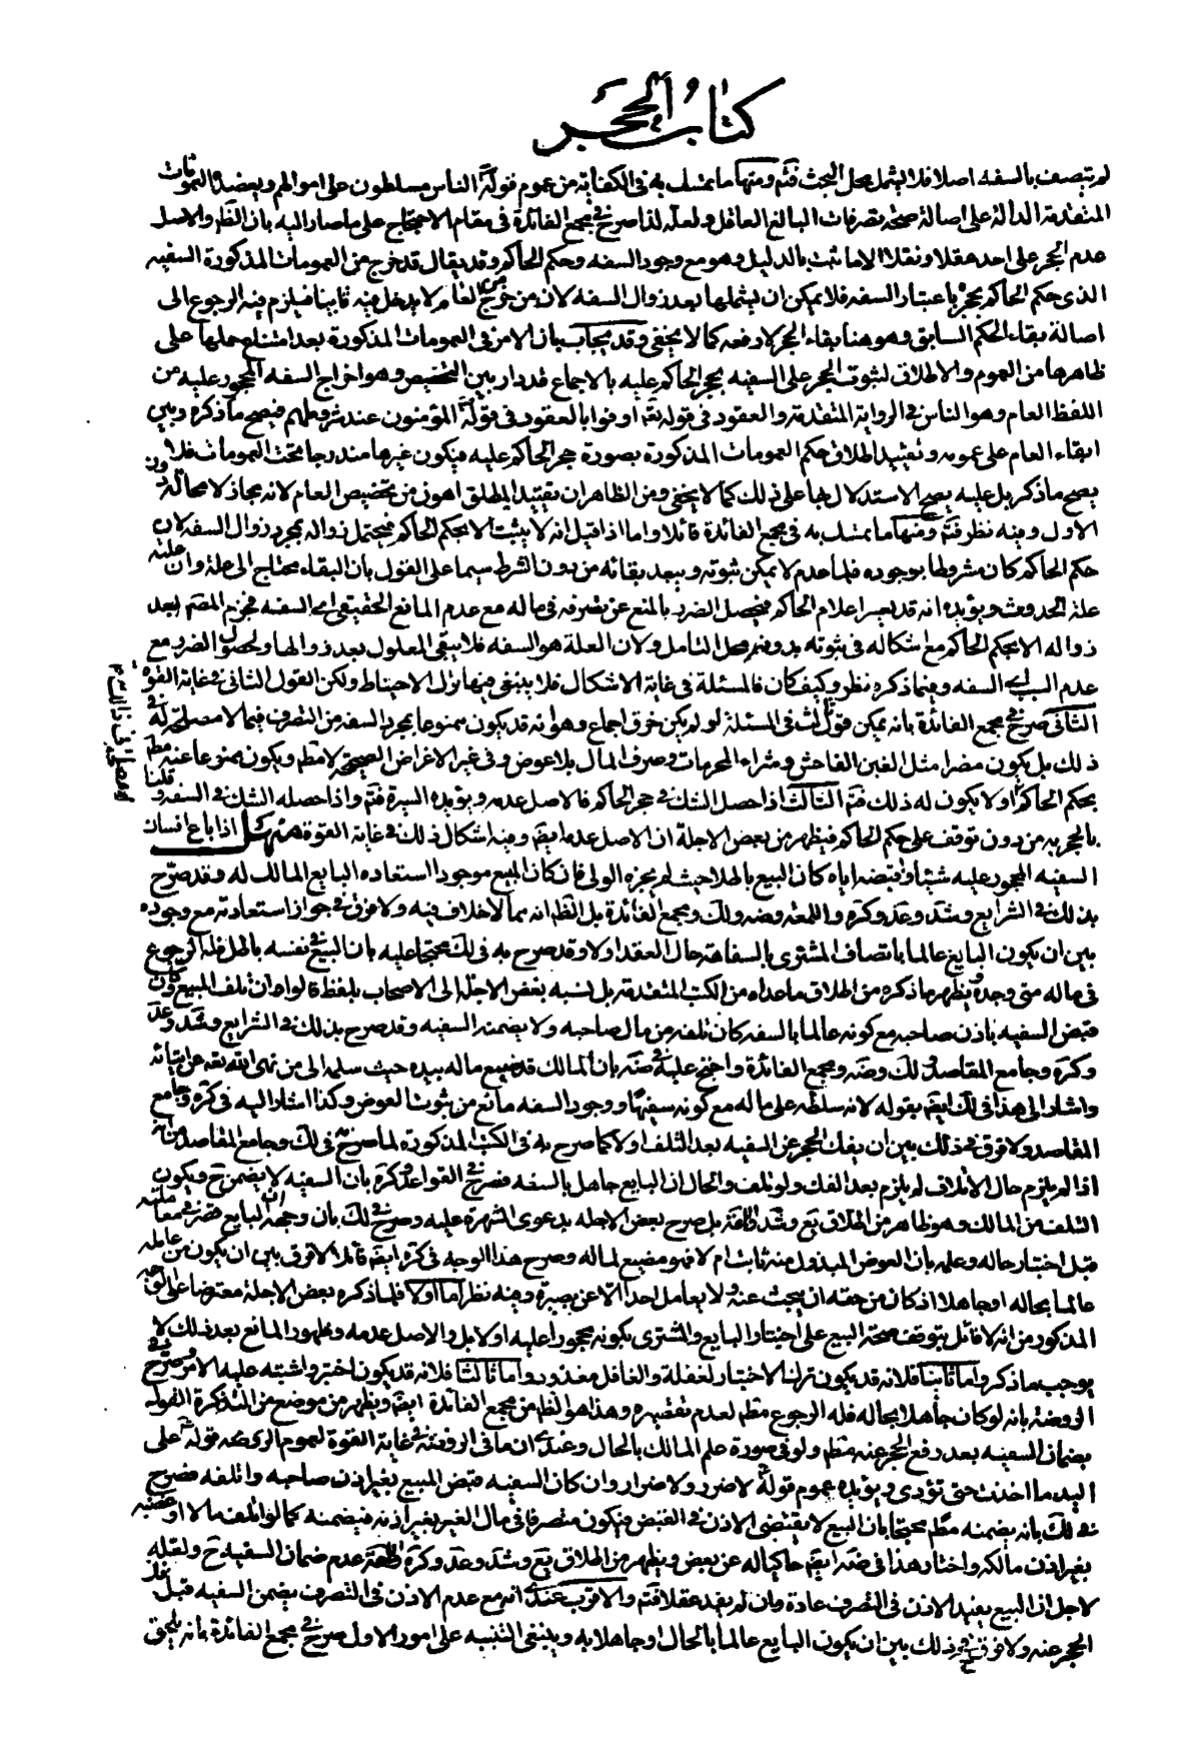 كتاب الحجر
لم يتصف بالسفه اصلا فلا يشمل محل البحث فتم ومنها ما تمسك به فى الكفاية من عموم قوله الناس مسلطون على اموالهم ويعضده العمومات
المتقدمة الدالة على اصالة صحة تصرفات البالغ العاقل ولعله لذا صرح فى مجمع الفائدة فى مقام الاحتجاج على ما صار اليه بان الظ والاصل
عدم الحجر على احد عقلا ونقلا الا ما ثبت بالدليل وهو مع وجود السفه وحكم الحاكم وقد يقال قد خرج من العمومات المذكورة السفيه
الذى حكم الحاكم بحجره باعتبار السفه فلا يمكن ان يشملها بعد زوال السفه لان من خرج من العام لا يدخل فيه ثانيا فيلزم فيه الرجوع الى
اصالة بقاء الحكم السابق وهو هنا بقاء الحجر لا دفعه كما لا يخفى وقد يجاب بان الامر فى العمومات المذكورة بعد امتناع حملها على
ظاهرها من العموم والاطلاق لثبوت الحجر على السفيه بحجر الحاكم عليه بالاجماع قد دار بين التخصيص وهو اخراج السفه المحجور عليه من
اللفظ العام وهو الناس فى الرواية المتقدمة والعقود فى قوله تعم اوفوا بالعقود فى قوله المؤمنون عند شروطهم فيصح ما ذكره وبين
ابقاء العام على عمومه وتقييد اطلاق حكم العمومات المذكورة بصورة حجر الحاكم عليه فيكون غيرها مندرجا تحت العمومات فلا
يصح ما ذكر بل عليه يصح الاستدلال بها على ذلك كما لا يخفى ومن الظاهر ان تقييد المطلق اهون من تخصيص العام لانه مجاز لا محالة دون
الاول وفيه نظر فتم ومنها ما تمسك به فى مجمع الفائدة قائلا واما اذا قيل انه لا يثبت الا بحكم الحاكم فيحتمل زواله بمجرد زوال السفه لان
حكم الحاكم كان مشروطا بوجوده فلما عدم لا يمكن ثبوته ويبعد بقائه من دون الشرط سيما على القول بان البقاء محتاج الى علة وان علته
علة الحدوث ويؤيده انه قد يعسر اعلام الحاكم فيحصل الضرر بالمنع عن تصرفه فى ماله مع عدم المانع الحقيقى اى السفه فجزم المصم بعد
زواله الا بحكم الحاكم مع اشكاله فى ثبوته بدونه محل التامل ولان العلة هو السفه فلا يبقى المعلول بعد زوالها ولحصول الضرر مع
عدم السبب اى السفه وفيما ذكره نظر وكيف كان فالمسئلة فى غاية الاشكال فلا ينبغى فيها ترك الاحتياط ولكن القول الثانى فى غاية القوة
الثانى صرح فى مجمع الفائدة بانه يمكن قول ثالث فى المسئلة لو لم يكن خرق اجماع وهو انه قد يكون ممنوعا بمجرد السفه من التصرف فيما لا مصلحة له فى
ذلك بل يكون مضرا مثل الغبن الفاحش وشراء المحرمات وصرف المال بلا عوض وفى غير الاغراض الصحيحة لا مطم ويكون ممنوعا عنه مطم
بحكم الحاكم او لا يكون له ذلك فتم الثالث اذا حصل الشك فى حجر الحاكم فالاصل عدمه ويؤيده السيرة فتم واذا حصله الشك فى السفه وقلنا
بالحجر به من دون توقف على حكم الحاكم فيظهر من بعض الاجلة ان الاصل عدمه ايضم وفيه اشكال ذلك فى غاية القوة منهل اذا باع انسان
السفيه المحجور عليه شيئا واقبضه اياه كان البيع باطلا حيث لم يجزه الولى فان كان المبيع موجودا استعاده البايع المالك له وقد صرح
بذلك فى الشرايع وشد وعد وكره واللمعة وضه ولك ومجمع الفائدة بل الظم انه مما لا خلاف فيه ولا فرق فى جواز استعادته مع وجوده
بين ان يكون البايع عالما باتصاف المشترى بالسفاهة حال العقد او لا وقد صرح به فى لك محتجا عليه بان البيع فى نفسه باطل فله الرجوع
فى ماله متى وجده ويظهر ما ذكره من اطلاق ما عداه من الكتب المتقدمة بل نسبه بعض الاجلة الى الاصحاب بلفظ قالوا وان تلف المبيع وكان
قبض السفيه باذن صاحبه مع كونه عالما بالسفه كان تلفه من مال صاحبه ولا يضمنه السفيه وقد صرح بذلك فى الشرايع وشد وعد
وكره وجامع المقاصد ولك وضه ومجمع الفائدة واحتج عليه فى ضه بان المالك قد ضيع ماله بيده حيث سلمه الى من نهى الله تعم عن ايتائه
واشار الى هذا فى لك ايضم بقوله لانه سلطه على ماله مع كونه سفيها ووجود السفه مانع من ثبوت العوض وكذا اشار اليه فى كره وجامع
المقاصد ولا فرق فى ذلك بين ان يفك الحجر عن السفيه بعد التلف او لا كما صرح به فى الكتب المذكورة لما صرح به فى لك وجامع المقاصد من انه
اذا لم يلزم حال الاتلاف لم يلزم بعد الفك ولو تلف والحال ان البايع جاهل بالسفه فصرح فى القواعد وكره بان السفيه لا يضمن ح ويكون
التلف من المالك وهو ظاهر من اطلاق يع وشد واللمعة بل صرح بعض الاجلة بدعوى الشهرة عليه وصرح فى لك بان وجهه ان البايع قصر فى معاملته
قبل اختبار حاله وعلمه بان العوض المبذول منه ثابت ام لا فهو مضيع لماله وصرح هذا الوجه فى كره ايضم قائلا لا فرق بين ان يكون من عامله
عالما بحاله او جاهلا اذ كان من حقه ان يبحث عنه ولا يعامل احدا الا عن بصيرة وفيه نظر اما اولا فلما ذكره بعض الاجلة معترضا على الوجه
المذكور من انه لا قائل بتوقف صحة البيع على اختبار البايع والمشترى بكونه محجورا عليه او لا بل والاصل عدمه وظهور المانع بعد ذلك لا
يوجب ما ذكر واما ثانيا فلانه قد يكون ترك الاختبار لغفلة والغافل معذور واما ثالثا فلانه قد يكون اختبر واشتبه عليه الامر وصرح فى
الروضة بانه لو كان جاهلا بحاله فله الرجوع مطم لعدم تقصيره وهذا هو الظم من مجمع الفائدة ايضم ويظهر من موضع من التذكرة القول
بضمان السفيه بعد رفع الحجر عنه مطم ولو فى صورة علم المالك بالحال وعندى ان ما فى الروضة فى غاية القوة لعموم قوله على
اليد ما اخذت حتى تؤدى ويؤيده عموم قوله لا ضرر ولا ضرار وان كان السفيه قبض المبيع بغير اذن صاحبه واتلفه فصرح
فى لك بانه يضمنه مطم محتجا بان البيع لا يقتضى الاذن فى القبض فيكون متصرفا فى مال الغير بغير اذنه فيضمنه كما لو اتلف مالا او غصبه
بغير اذن مالكه واختار هذا فى ضه ايضم حاكيا له عن بعض ويظهر من اطلاق يع وشد وعد وكره واللمعة عدم ضمان السفيه ح ولعله
لاجل ان البيع يفيد الاذن فى التصرف عادة وان لم يفد عقلا فتم والاقرب عندى انه مع عدم الاذن فى التصرف يضمن السفيه قبل فك
الحجر عنه ولا فرق فى ذلك بين ان يكون البايع عالما بالحال او جاهلا به وينبغى التنبيه على امور الاول صرح فى مجمع الفائدة بانه يلحق